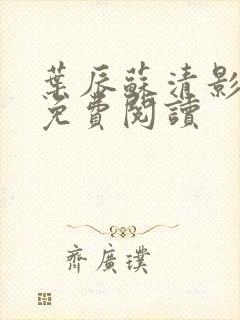 葉辰蘇清影
免費閱讀
齊廣璞